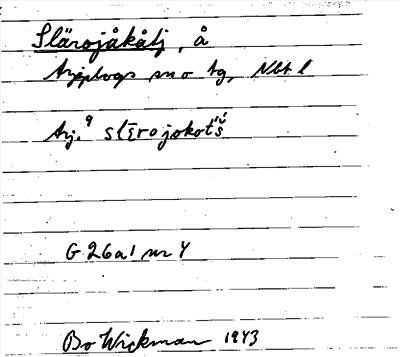 Slärojåkåtj, å
Arjeplogs sn o tg, Nbt l
Arj. 9 slɛ̄rojokot́š́
G 26a1 nr 4
Bo Wickman 1943